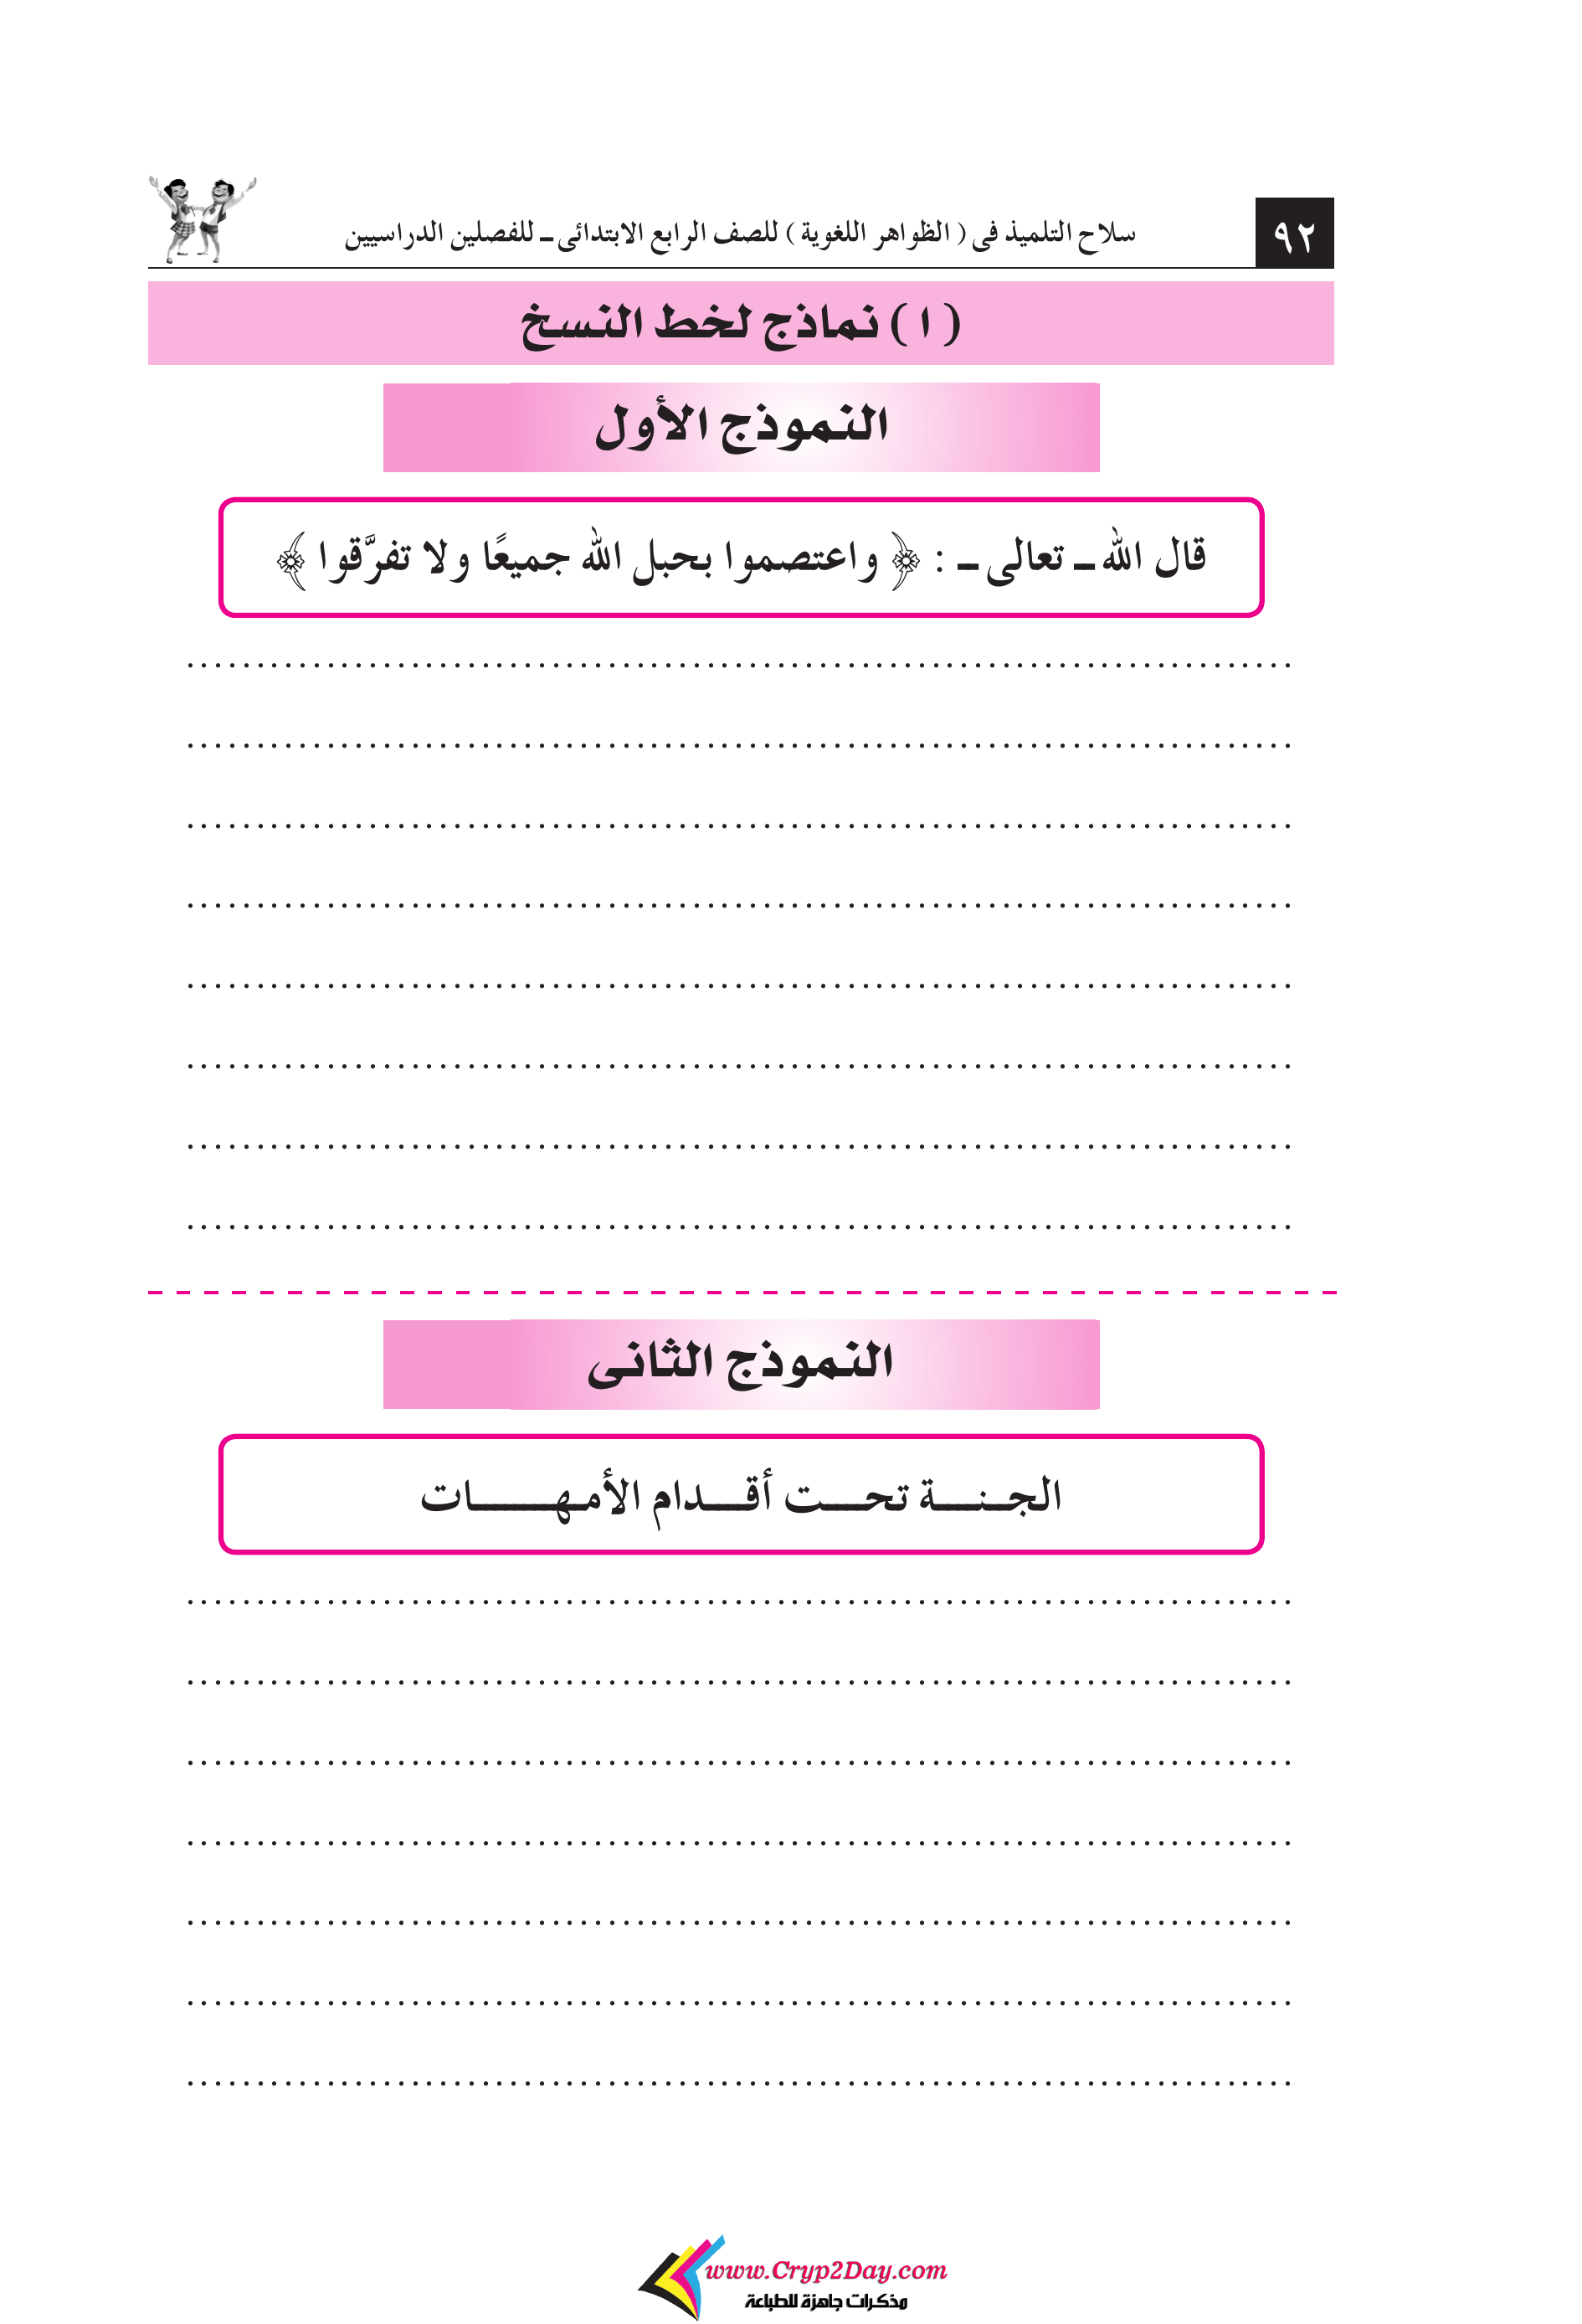 سلاح التلميذ فى ( الظواهر اللغوية ) للصف الرابع الابتدائى ـ للفصلين الدراسيين ٩٢
( ١ ) نماذج لخط النسخ
النموذج الأول
قال الله ـ تعالى ـ : ﴿ واعتصموا بحبل الله جميعًا ولا تفرَّقوا ﴾
................................................................................
................................................................................
................................................................................
................................................................................
................................................................................
................................................................................
................................................................................
................................................................................
النموذج الثانى
الجـنـــة تحـــت أقـــدام الأمـهــــــات
................................................................................
................................................................................
................................................................................
................................................................................
................................................................................
................................................................................
................................................................................
www.Cryp2Day.com
مذكرات جاهزة للطباعة